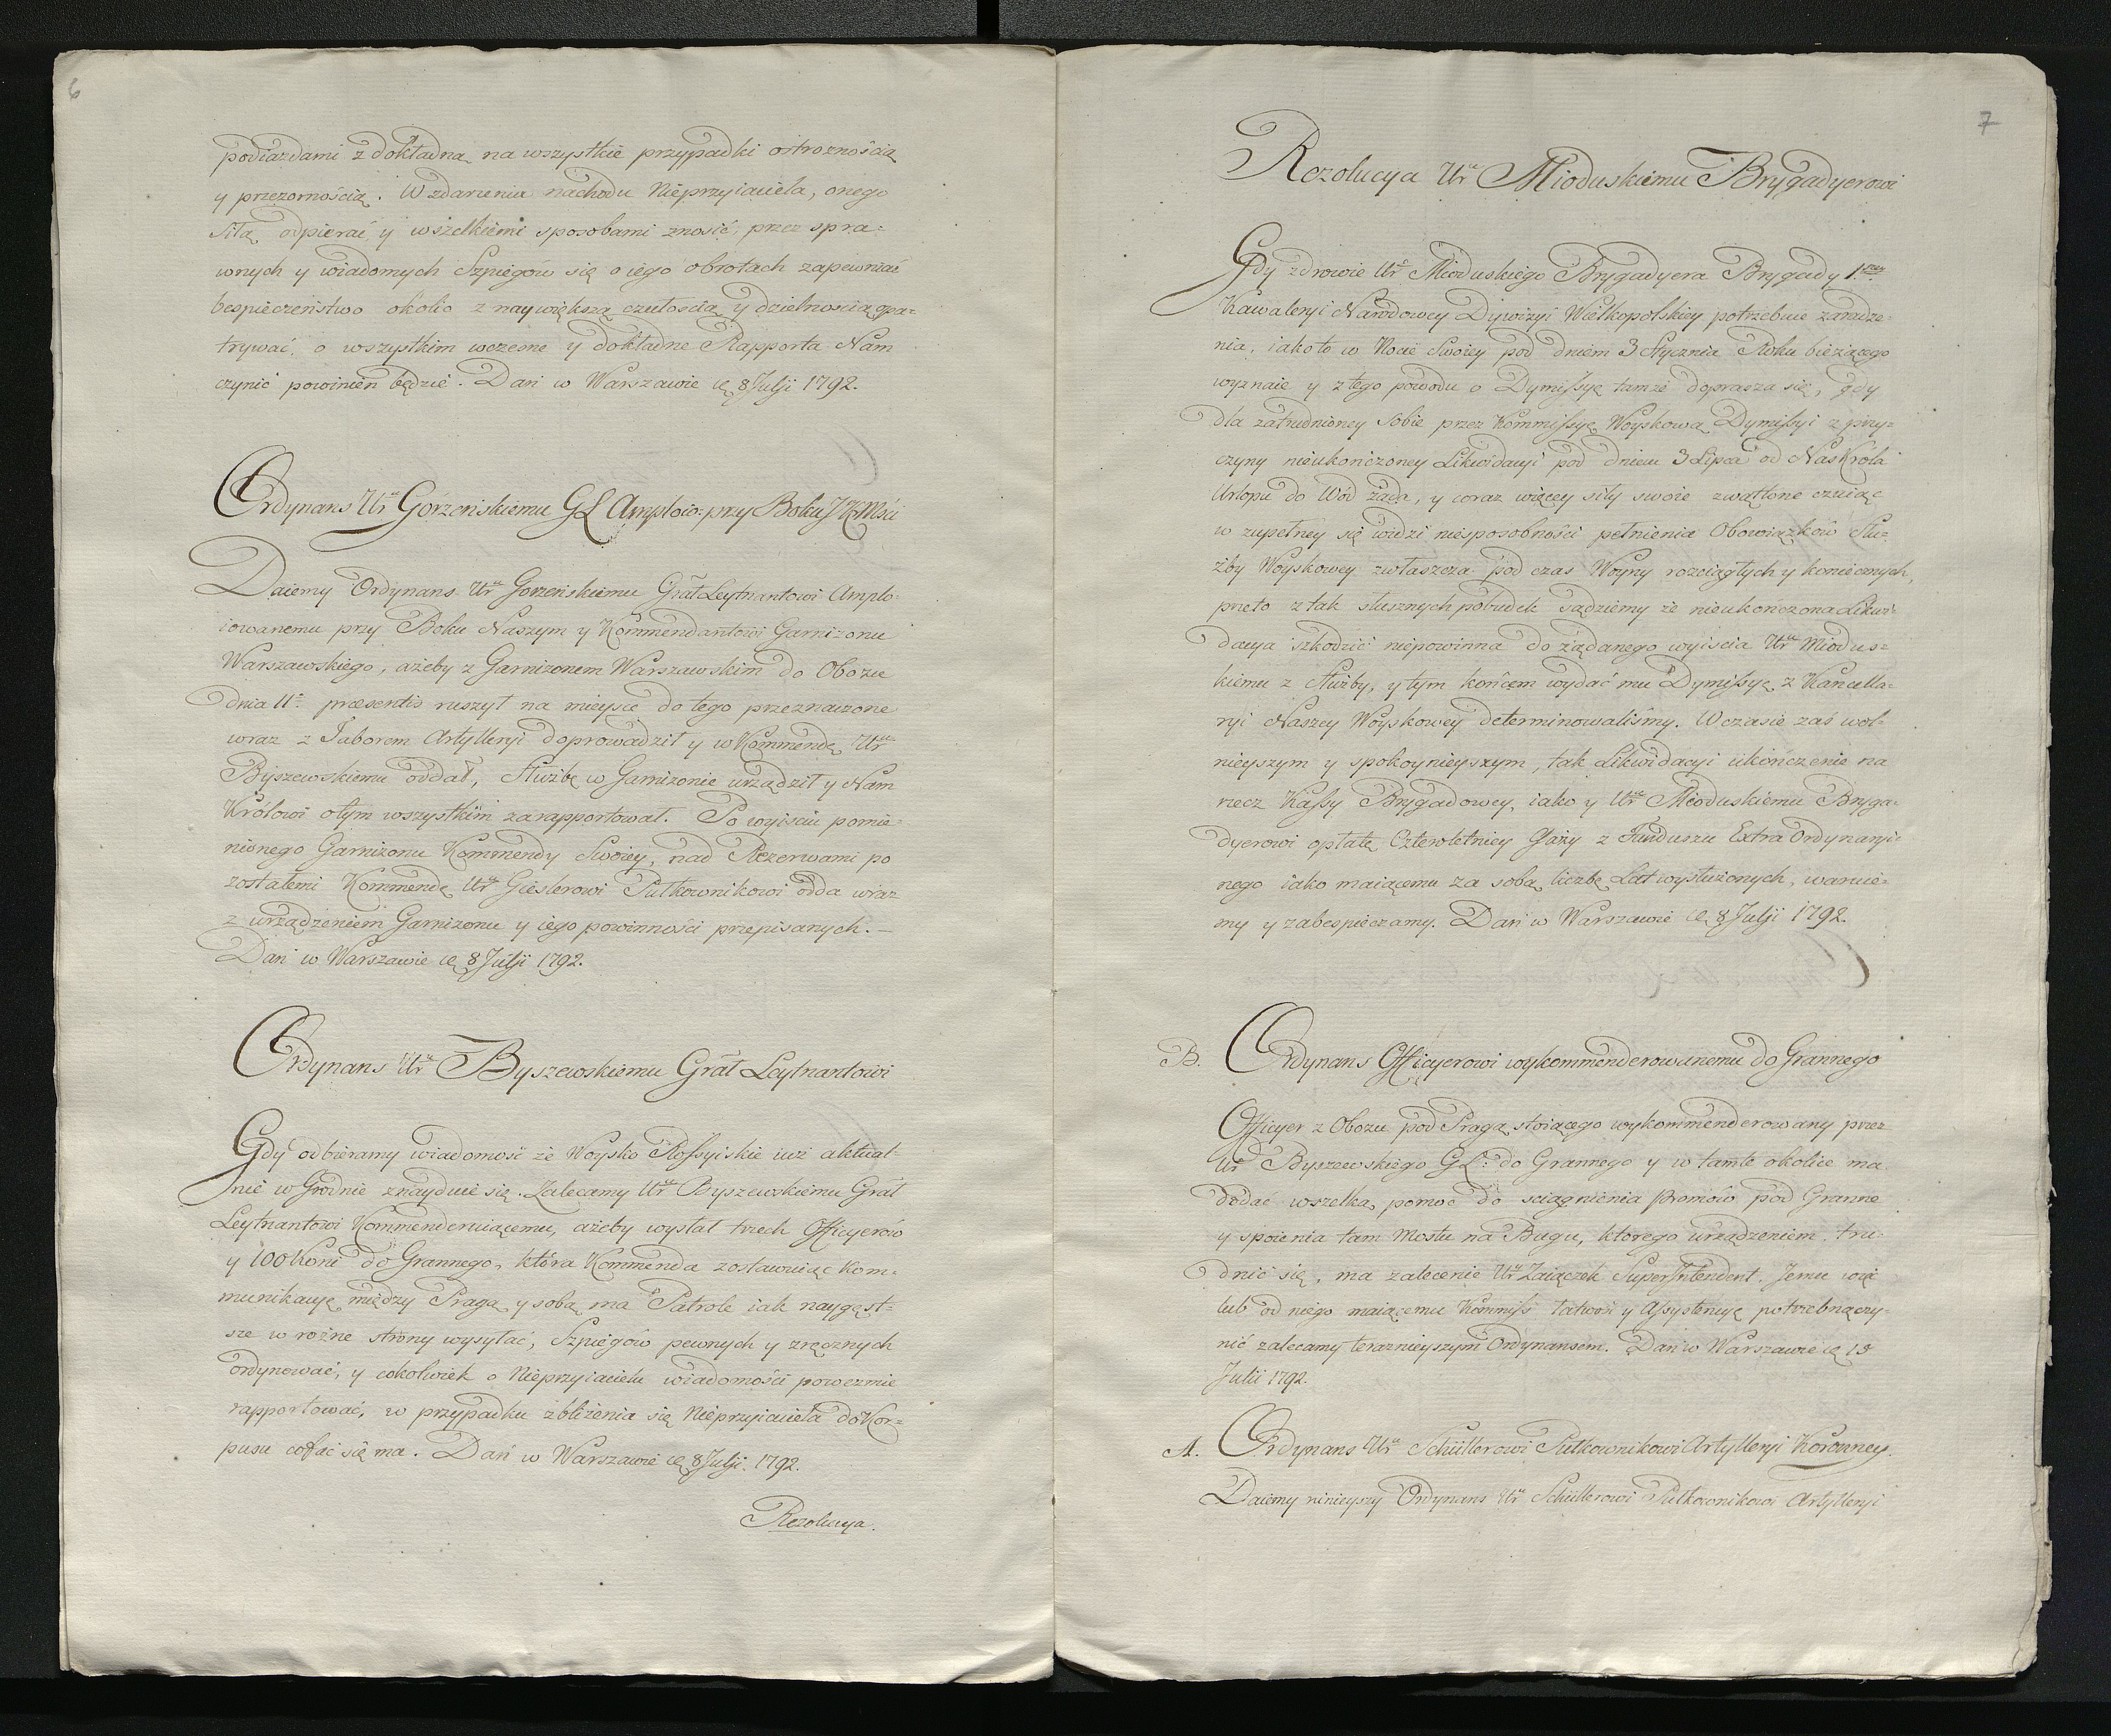 6
podiazdami z dokładną na wszystkie przypadki ostrożnością
y przezornością. W zdarzeniu nachodu Nieprzyiaciela, onego
siłą odpierać, y wszelkiemi sposobami znosić, przez spra=
wnych y wiadomych Szpiegów się o iego obrotach zapewniać
bespieczeństwo okolic z naywiększą czułością y dzielnością opa=
trywać, o wszystkim wczesne y dokładne Rapporta Nam
czynić powinien będzie. Dan w Warszawie d. 8 Julji 1792.
Ordynans Ur. Gorzeńskiemu GL Amploio: przy Boku JKMści
Daiemy Ordynans Ur. Gorzeńskiemu Grał Leytnantowi Amplo-
iowanemu przy Boku Naszym y Kommendantowi Garnizonu
Warszawskiego, ażeby z Garnizonem Warszawskim do Obozu
dnia 11. præsentis ruszył na mieysce do tego przeznaczone
wraz z Taborem Artylleryi doprowadził y w Kommendę Ur.
Byszewskiemu oddał, Służbę w Garnizonie urządził y Nam
Królowi o tym wszystkim zarapportował. Po wyisciu pomie-
nionego Garnizonu Kommendy Swoiey, nad Rezerwami po
zostałemi Kommendę Ur. Gieslerowi Pułkownikowi odda wraz
z urządzeniem Garnizonu y iego powinności przepisanych. —
Dan w Warszawie d. 8 Julji 1792.
Ordynans Ur. Byszewskiemu Grał Leytnantowi
Gdy odbieramy wiadomość że Woysko Rossyiskie iuż aktual-
nie w Grodnie znayduie się. Zalecamy Ur. Byszewskiemu Grał
Leytnantowi Kommenderuiącemu, ażeby wysłał trzech Officyerów
y 100 Koni do Grannego, która Kommenda zostawuiąc kom-
munikacyę między Pragą y sobą ma Patrole iak naygęst-
sze w rożne strony wysyłać, Szpiegów pewnych y zręcznych
ordynować, y cokolwiek o Nieprzyiacielu wiadomości powezmie
rapportować, w przypadku zbliżenia się Nieprzyiaciela do Kor=
pusu cofać się ma. Dan w Warszawie d. 8 Julji. 1792.
Rezolucya.
7
Rezolucya Ur. Mioduskiemu Brygadyerowi
Gdy zdrowie Ur. Mioduskiego Brygadyera Brygady 1.
Kawaleryi Narodowey Dywizyi Wielkopolskiey potrzebuie zaradze-
nia, iako to w Nocie Swoiey pod dniem 3 Stycznia Roku bieżącego
wyznaie y z tego powodu o Dymissyę tamże doprasza się, gdy
dla zatrudnioney sobie przez Kommissyę Woyskową Dymissyi z przy-
czyny nieukończoney Likwidacyi pod dniem 3 Lipca od Nas Króla
Urlopu do Wod żąda, y coraz więcey siły swoie zwątlone czuiąc
w zupełney się widzi niesposobności pełnienia Obowiązków Słu-
żby Woyskowey zwłaszcza pod czas Woyny rozciągłych y koniecznych,
przeto z tak słusznych pobudek sądziemy że nieukończona Likwi-
dacya szkodzić niepowinna do żądanego wyiścia Ur. Miodus=
kiemu z Służby, y tym końcem wydać mu Dymissyę z Kancella-
ryi Naszey Woyskowey determinowaliśmy. W czasie zaś wol-
nieyszym y spokoynieyszym, tak Likwidacyi ukończenie na
rzecz Kassy Brygadowey, iako y Ur. Mioduskiemu Bryga-
dyerowi opłatę Czteroletniey Gaży z Funduszu Extra Ordynaryi-
nego iako maiącemu za sobą liczbę Lat wysłużonych, warue-
my y zabespieczamy. Dan w Warszawie d. 8 Julji 1792.
B. Ordynans Officyerowi wykommenderowanemu do Grannego
Officyer z Obozu pod Pragą stoiącego wykommenderowany przez
Ur. Byszewskiego GL. do Grannego y w tamte okolice ma
dodać wszelką pomoc do sciągnienia promów pod Granne
y spoienia tam Mostu na Bugu, którego urządzeniem tru-
dnić się, ma zalecenie Ur. Zaiączek SuperIntendent. Jemu więc
lub od niego maiącemu Kommiss łatwość y Assystencyę potrzebną czy-
nić zalecamy teraznieyszym Ordynansem. Dan w Warszawie d. 13
Julii 1792.
A. Ordynans Ur. Schüllerowi Pułkownikowi Artylleryi Koronney.
Daiemy ninieyszy Ordynans Ur. Schüllerowi Pułkownikowi Artylleryi